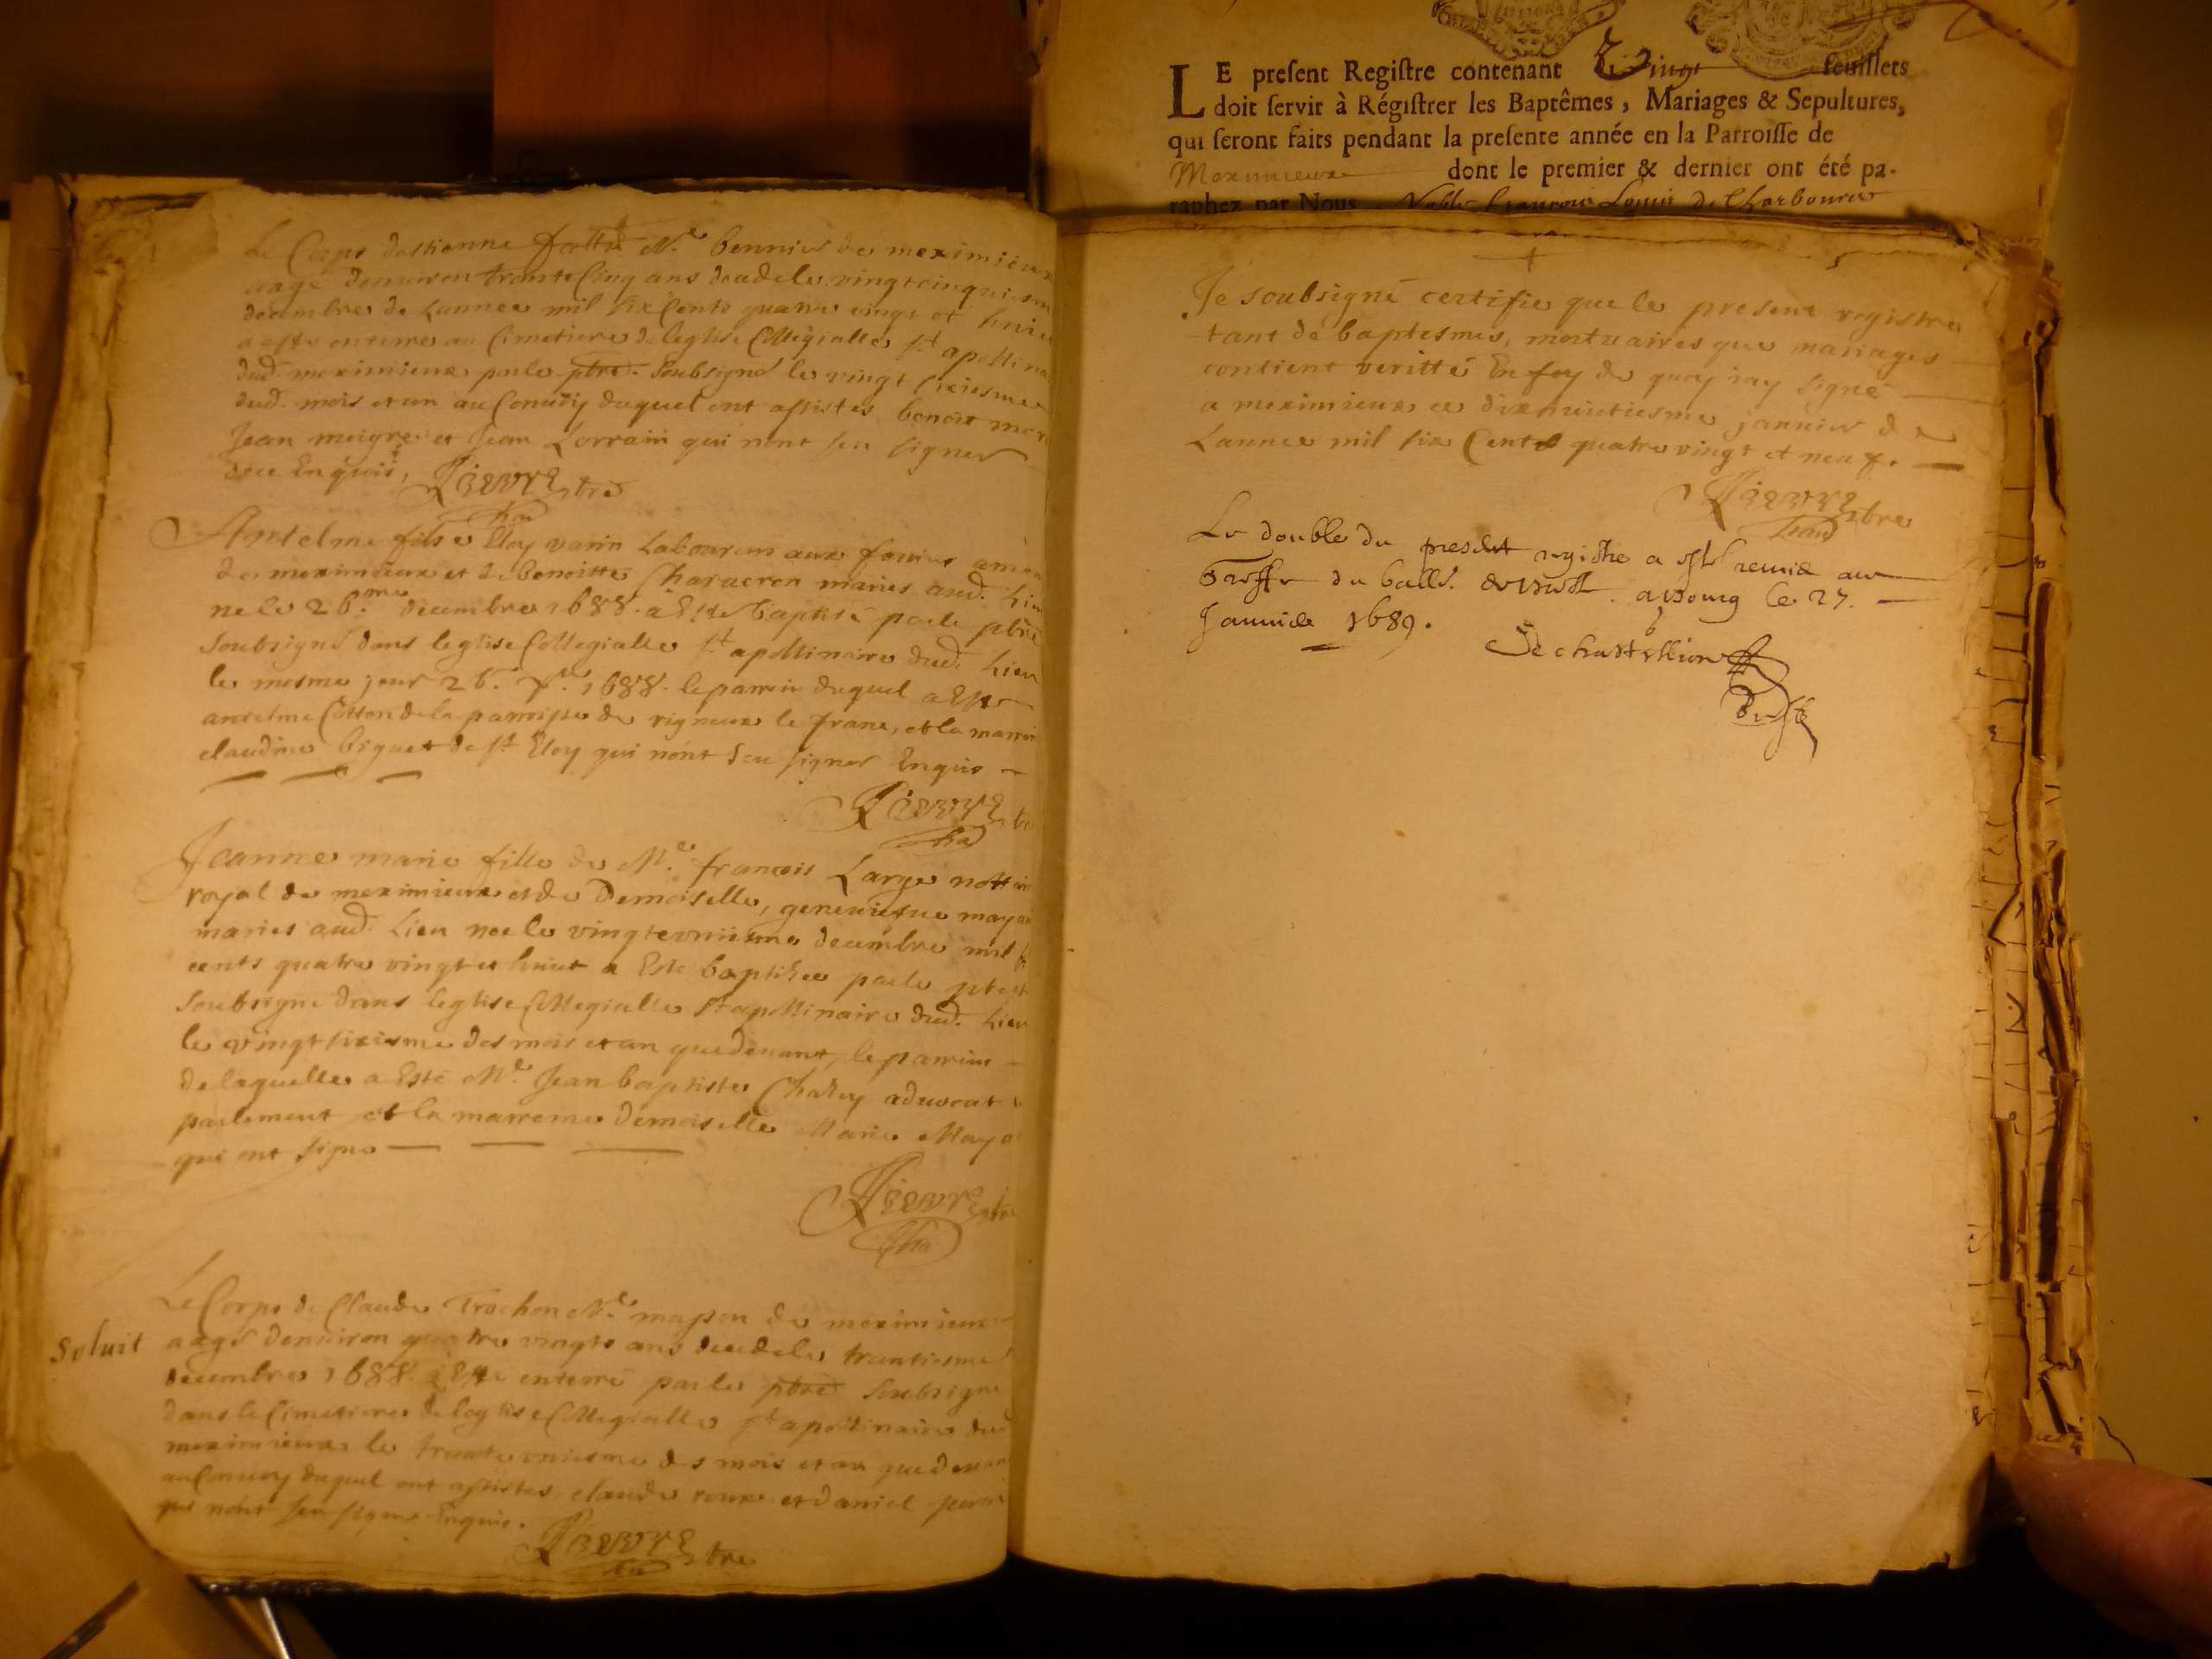 Le Corps destienne fottra Me bennier de meximieux
aagé denuiron trente Cinq ans decedé le vingtcinquiesme
decembre de Lannee mil six Cents quatre vingt et huict
a esté enterré au Cimetiere de leglise Collegialle St apollinaire
dud. meximieux par le pbre soubsigné le vingt sixiesme
dud. mois et an au Conuoy duquel ont assistés benoist
Jean meigre et Jean Lorrain qui nont sceu signer
de ce Enquis, Pievre pbre
Antelme fils a Eloy varin Laboureur aux
de meximieux et de benoitte Characron mariés aud. Lieu
né le 26.me decembre 1688. a Esté baptisé par le pbre
soubsigné dans leglise Collegialle St apollinaire dud. Lieu
le mesme jour 26. Xbre 1688. le parrin duquel a Esté
antelme Cotton de la parroisse de vigneux le franc, et la marreine
claudine biguet de St Eloy qui nont sceu signer Enquis
Pievre pbre
Jeanne marie fille de Me francois Large nottaire
royal de meximieux et de Demoiselle, geneuiefue
mariés aud. Lieu nee le vingtvniesme decembre mil six
cents quatre vingt et huict a Esté baptisée par le pbre
soubsigné dans leglise Collegialle St apollinaire dud. Lieu
le vingt sixiesme des mois et an que deuant, le parrin
de laquelle a Esté Me Jean baptiste Chaley aduocat
parlement et la marreine demoiselle Marie
qui ont signé
Pievre pbre
Soluit
Le Corps de Claude Trochon Me masson de meximieux
aagé denuiron quatre vingts ans decedé le trentiesme
decembre 1688. a Esté enterré par le pbre soubsigné
dans le Cimetiere de leglise Collegialle St apollinaire dud
meximieux le trente vniesme des mois et an que deuant
au Conuoy duquel ont assistés claude roux et daniel
qui nont sceu signer Enquis.
Pievre pbre
LE present Registre contenant Vingt feuillets
doit servir à Régistrer les Baptêmes, Mariages & Sepultures,
qui seront faits pendant la presente année en la Parroisse de
Meximieux dont le premier & dernier ont été pa-
raphez par Nous Noble francois Louis de Charbourcet
Je soubsigné certifie que le present registre
tant de baptesmes, mortuaires que mariages
contient veritté En foy de quoy iay signé
a meximieux ce dixhuictiesme januier de
Lannee mil six Cents quatre vingt et neuf.
Pievre pbre
Le double du present registre a esté remis au
Greffe du baill. de bresse a bourg le 27.
Januier 1689.
De chastillion